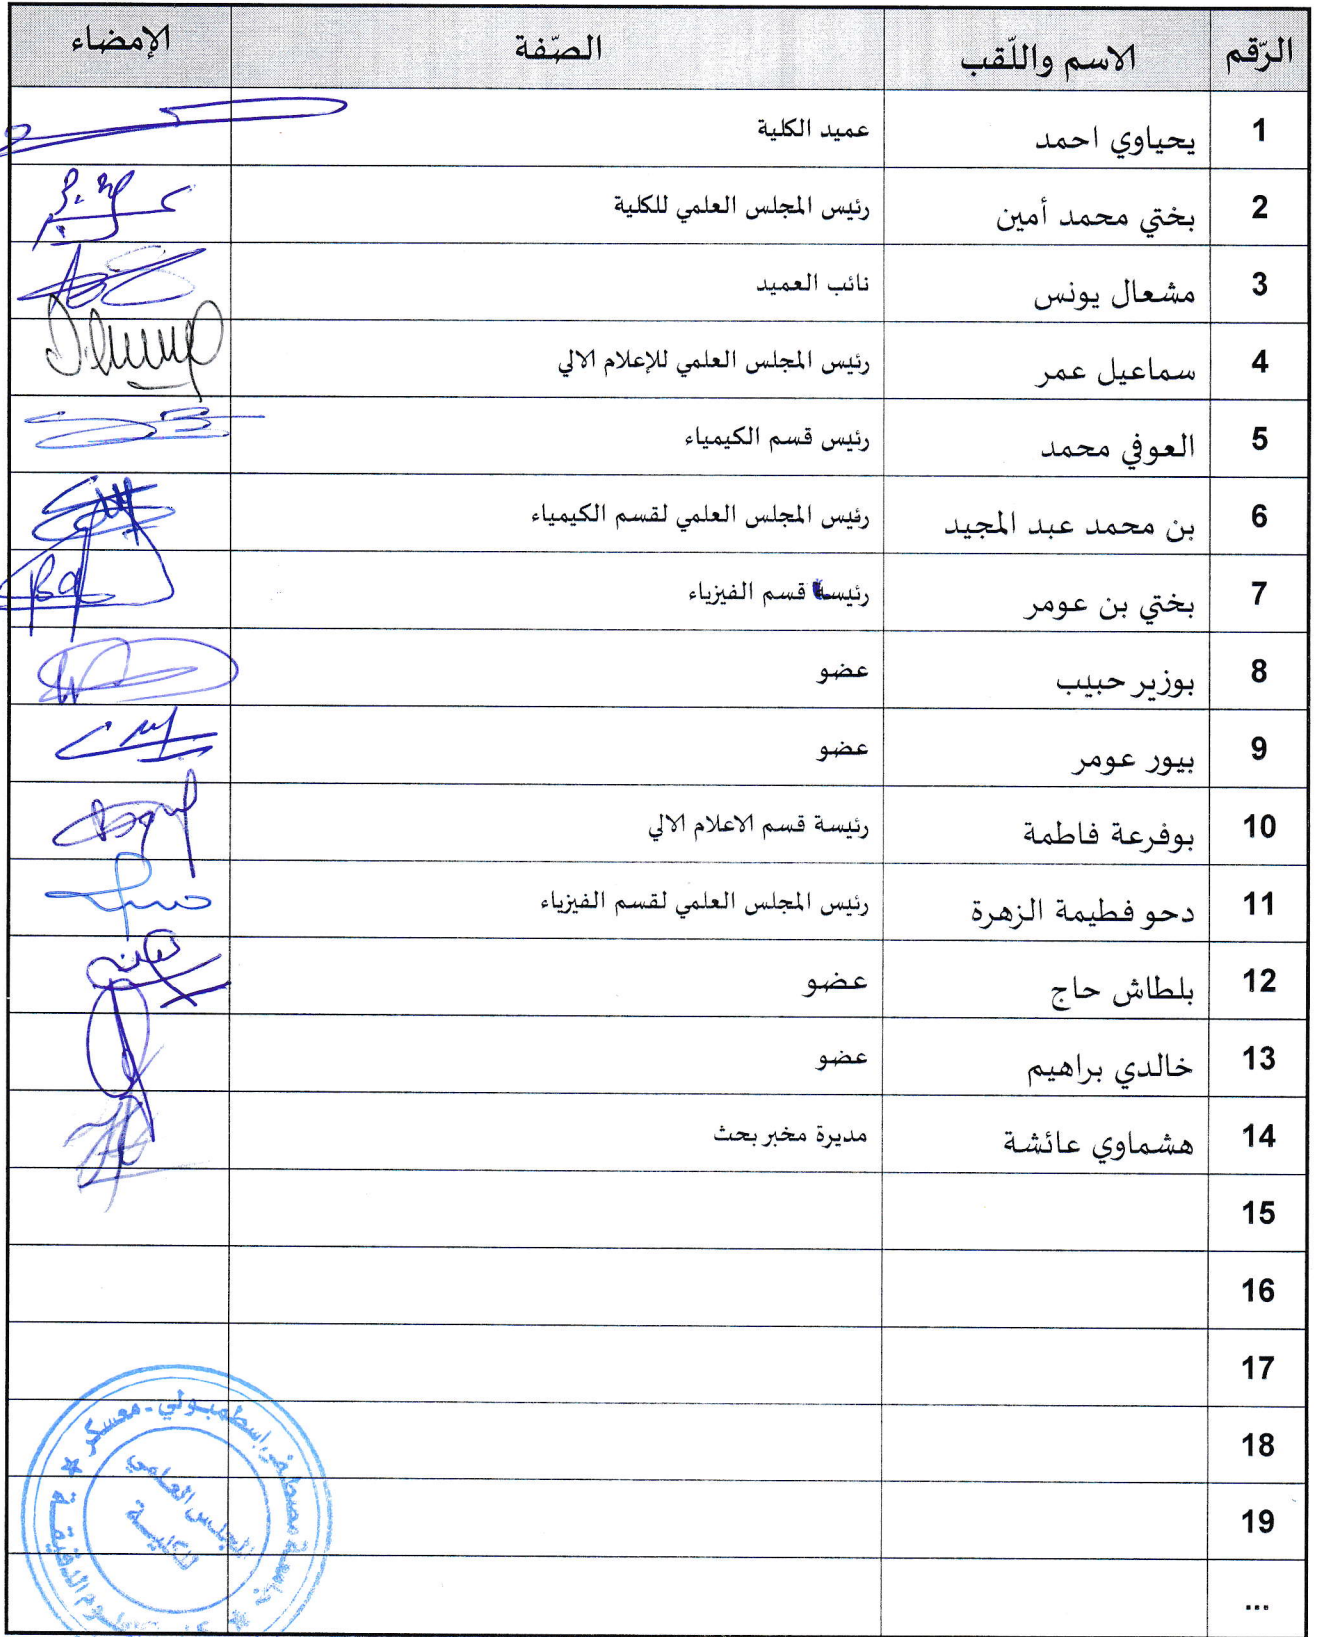 الرّقم الاسم واللّقب الصّفة الإمضاء
1 يحياوي احمد عميد الكلية
2 بختي محمد أمين رئيس المجلس العلمي للكلية
3 مشعال يونس نائب العميد
4 سماعيل عمر رئيس المجلس العلمي للإعلام الالي
5 العوفي محمد رئيس قسم الكيمياء
6 بن محمد عبد المجيد رئيس المجلس العلمي لقسم الكيمياء
7 بختي بن عومر رئيس قسم الفيزياء
8 بوزير حبيب عضو
9 بيور عومر عضو
10 بوفرعة فاطمة رئيسة قسم الاعلام الالي
11 دحو فطيمة الزهرة رئيس المجلس العلمي لقسم الفيزياء
12 بلطاش حاج عضو
13 خالدي براهيم عضو
14 هشماوي عائشة مديرة مخبر بحث
15
16
17
18
19
...
جامعة مصطفى اسطمبولي - معسكر
المجلس العلمي
للكلية